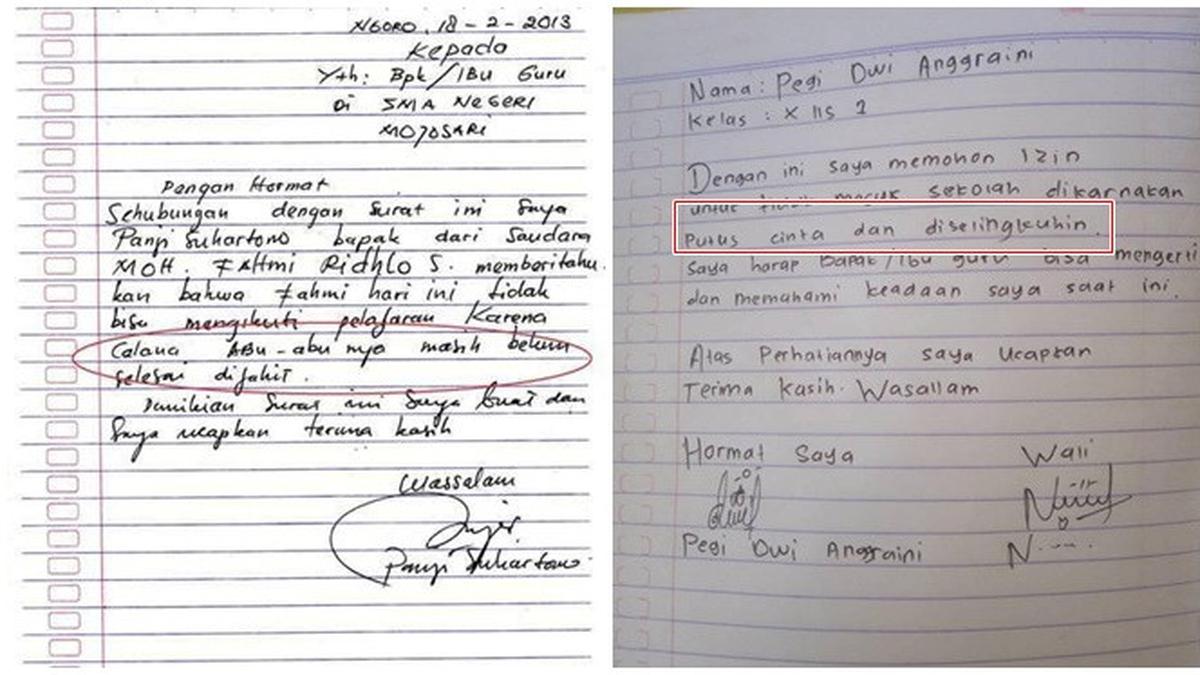 NGORO, 18-2-2013
Kepada
Yth: Bpk/IBu Guru
Di SMA NEGERI
MOJOSARI
Dengan Hormat
Sehubungan dengan surat ini Saya
Panji Suhartono bapak dari Saudara
MOH. FAHmi Ridhlo S. memberitahu.
kan bahwa Fahmi hari ini tidak
bisa mengikuti pelajaran Karena
Celana ABu-abu nya masih belum
selesai dijahit.
Demikian Surat ini Saya buat dan
Saya ucapkan terima kasih
Wassalam
Panji Suhartono
Nama: Pegi Dwi Anggraini
Kelas : X IIS 1
Dengan ini saya memohon Izin
untuk tidak masuk sekolah dikarnakan
Putus cinta dan diselingkuhin.
Saya harap Bapak/Ibu guru bisa mengerti
dan memahami keadaan saya saat ini.
Atas Perhatiannya saya Ucapkan
Terima kasih. Wasallam
Hormat Saya Wali
Pegi Dwi Anggraini N.....